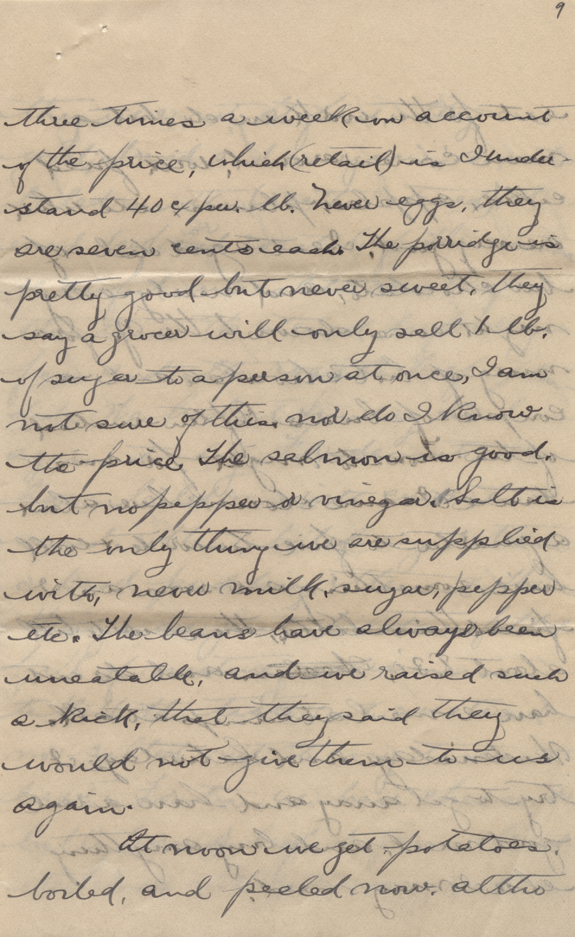 9
three times a week on account
of the price, which (retail) is I under-
stand 40¢ per. lb. Never eggs, they
are seven cents each. The porridge is
pretty good but never sweet, they
say a grocer will only sell 1 lb.
of sugar to a person at once, I am
not sure of this, nor do I know
the price. The salmon is good,
but no pepper or vinegar. Salt is
the only thing we are supplied
with, never milk, sugar, pepper
etc. The beans have always been
uneatable, and we raised such
a kick, that they said they
would not give them to us
again.
At noon we get potatoes,
boiled, and peeled now, altho